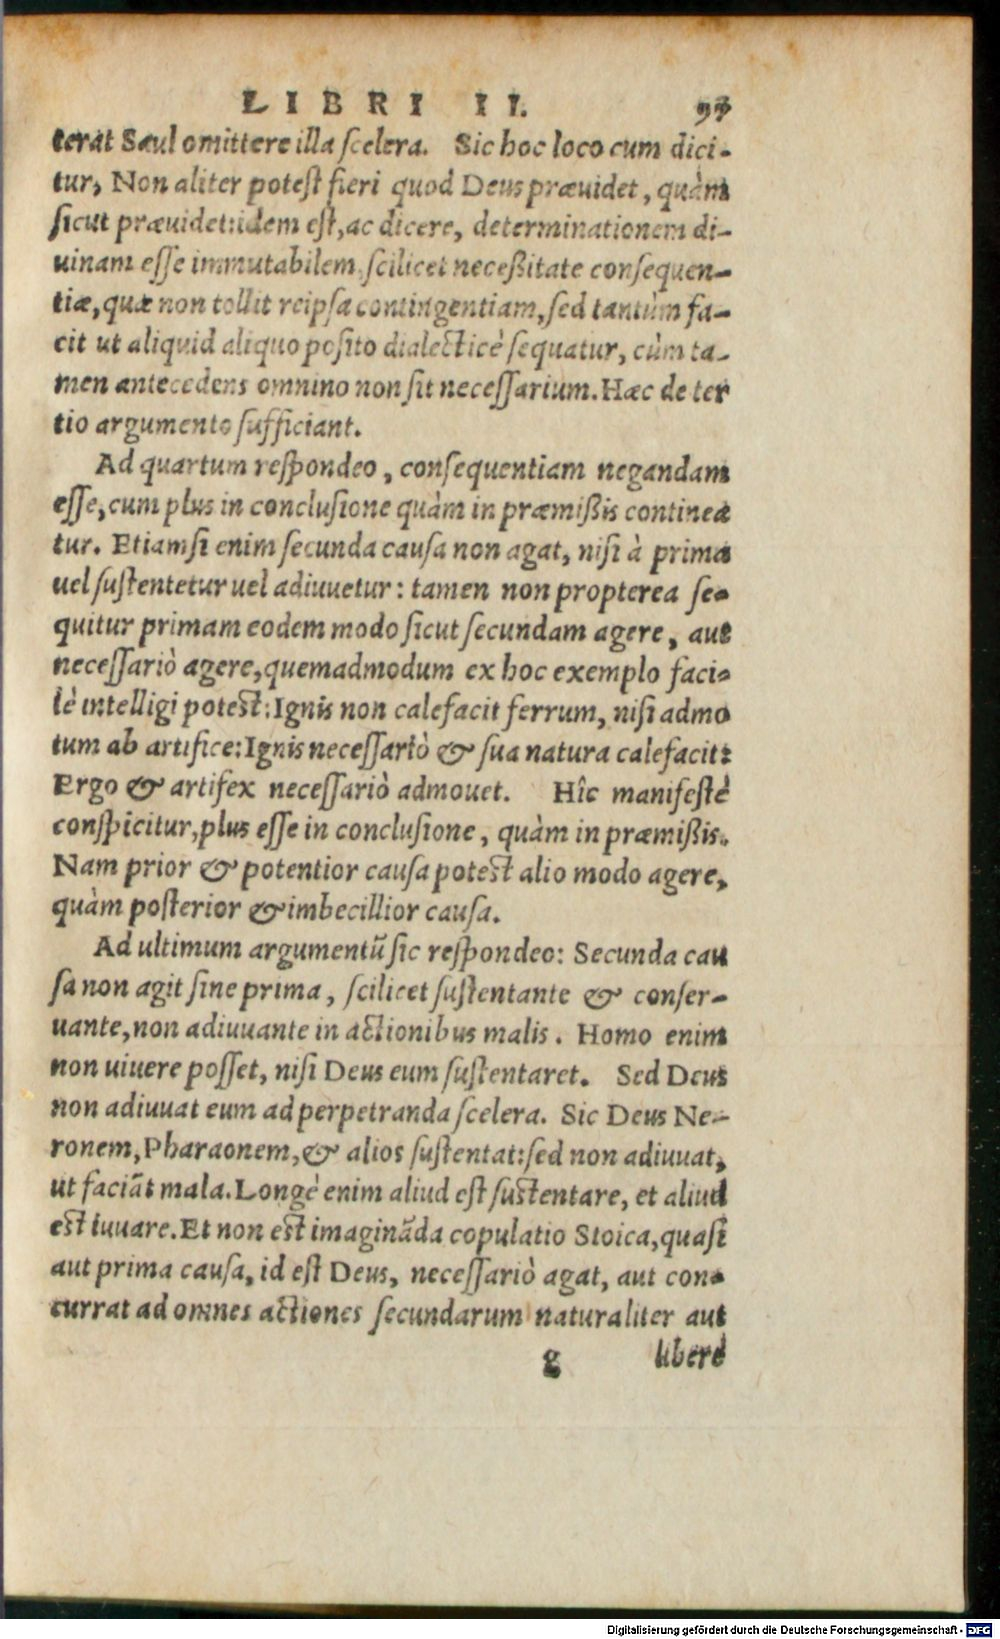 LIBRI II. 97
terat Saul omittere illa scelera. Sic hoc loco cum dici-
tur, Non aliter potest fieri quod Deus præuidet, quàm
sicut præuidet: idem est, ac dicere, determinationem di-
uinam esse immutabilem, scilicet neceßitate consequen-
tiæ, quæ non tollit reipsa contingentiam, sed tantùm fa-
cit ut aliquid aliquo posito dialecticè sequatur, cùm ta-
men antecedens omnino non sit necessarium. Hæc de ter
tio argumento sufficiant.
Ad quartum respondeo, consequentiam negandam
esse, cum plus in conclusione quàm in præmißis continea
tur. Etiamsi enim secunda causa non agat, nisi à prima
uel sustentetur uel adiuuetur: tamen non propterea se-
quitur primam eodem modo sicut secundam agere, aut
necessariò agere, quemadmodum ex hoc exemplo faci-
lè intelligi potest: Ignis non calefacit ferrum, nisi admo
tum ab artifice: Ignis necessariò & sua natura calefacit:
Ergo & artifex necessariò admouet. Hîc manifestè
conspicitur, plus esse in conclusione, quàm in præmißis.
Nam prior & potentior causa potest alio modo agere,
quàm posterior & imbecillior causa.
Ad ultimum argumentũ sic respondeo: Secunda cau
sa non agit sine prima, scilicet sustentante & conser-
uante, non adiuuante in actionibus malis. Homo enim
non uiuere posset, nisi Deus eum sustentaret. Sed Deus
non adiuuat eum ad perpetranda scelera. Sic Deus Ne-
ronem, Pharaonem, & alios sustentat: sed non adiuuat,
ut faciãt mala. Longè enim aliud est sustentare, et aliud
est iuuare. Et non est imaginãda copulatio Stoica, quasi
aut prima causa, id est Deus, necessariò agat, aut con-
currat ad omnes actiones secundarum naturaliter aut
g liberè
Digitalisierung gefördert durch die Deutsche Forschungsgemeinschaft - DFG